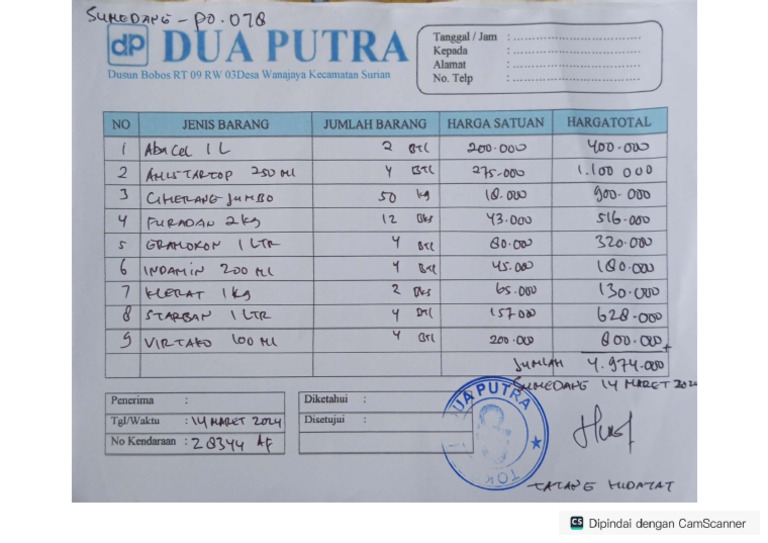 SUMEDANG - PO.078
dp DUA PUTRA
Dusun Bobos RT 09 RW 03Desa Wanajaya Kecamatan Surian
Tanggal / Jam :
Kepada :
Alamat :
No. Telp :
NO JENIS BARANG JUMLAH BARANG HARGA SATUAN HARGATOTAL
1 Abacel 1 L 2 BTL 200.000 400.000
2 AMISTARTOP 250 Ml 4 BTL 275.000 1.100 000
3 CIHERANG JUMBO 50 kg 18.000 900.000
4 FURADAN 2 kg 12 Bks 43.000 516.000
5 GRAMOXON 1 LTR 4 BTL 80.000 320.000
6 INDAMIN 200 Ml 4 BTL 45.000 180.000
7 KLERAT 1 kg 2 Bks 65.000 130.000
8 STARBAN 1 LTR 4 BTL 157000 628.000
9 VIRTAKO 100 Ml 4 BTL 200.000 800.000 +
JUMLAH 4.974.000
SUMEDANG 14 MARET 2024
Penerima :
Tgl/Waktu : 14 MARET 2024
No Kendaraan : Z 8344 AF
Diketahui :
Disetujui :
DUA PUTRA
TOK
TATANG HIDAYAT
CS Dipindai dengan CamScanner